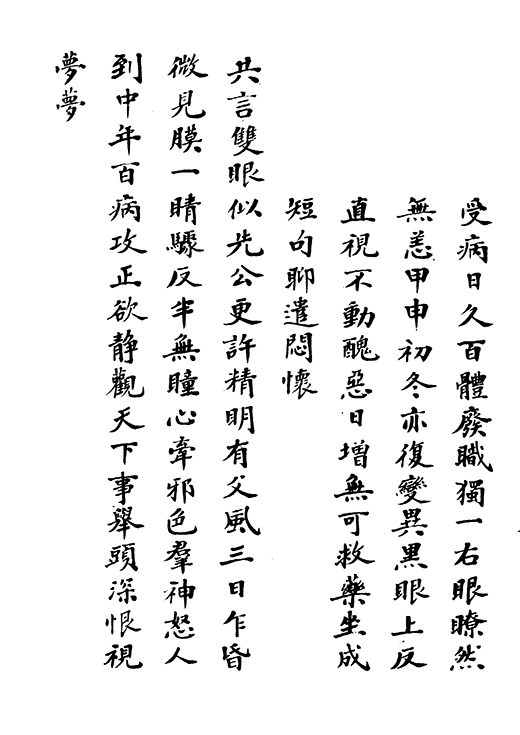 受病日久百體廢職獨一右眼瞭然
無恙甲申初冬亦復變異黑眼上反
直視不動醜惡日增無可救藥坐成
短句聊遣悶懷
共言雙眼似先公更許精明有父風三日乍昏
微見膜一睛驟反半無瞳心牽邪色羣神怒人
到中年百病攻正欲静觀天下事舉頭深恨視
夢夢